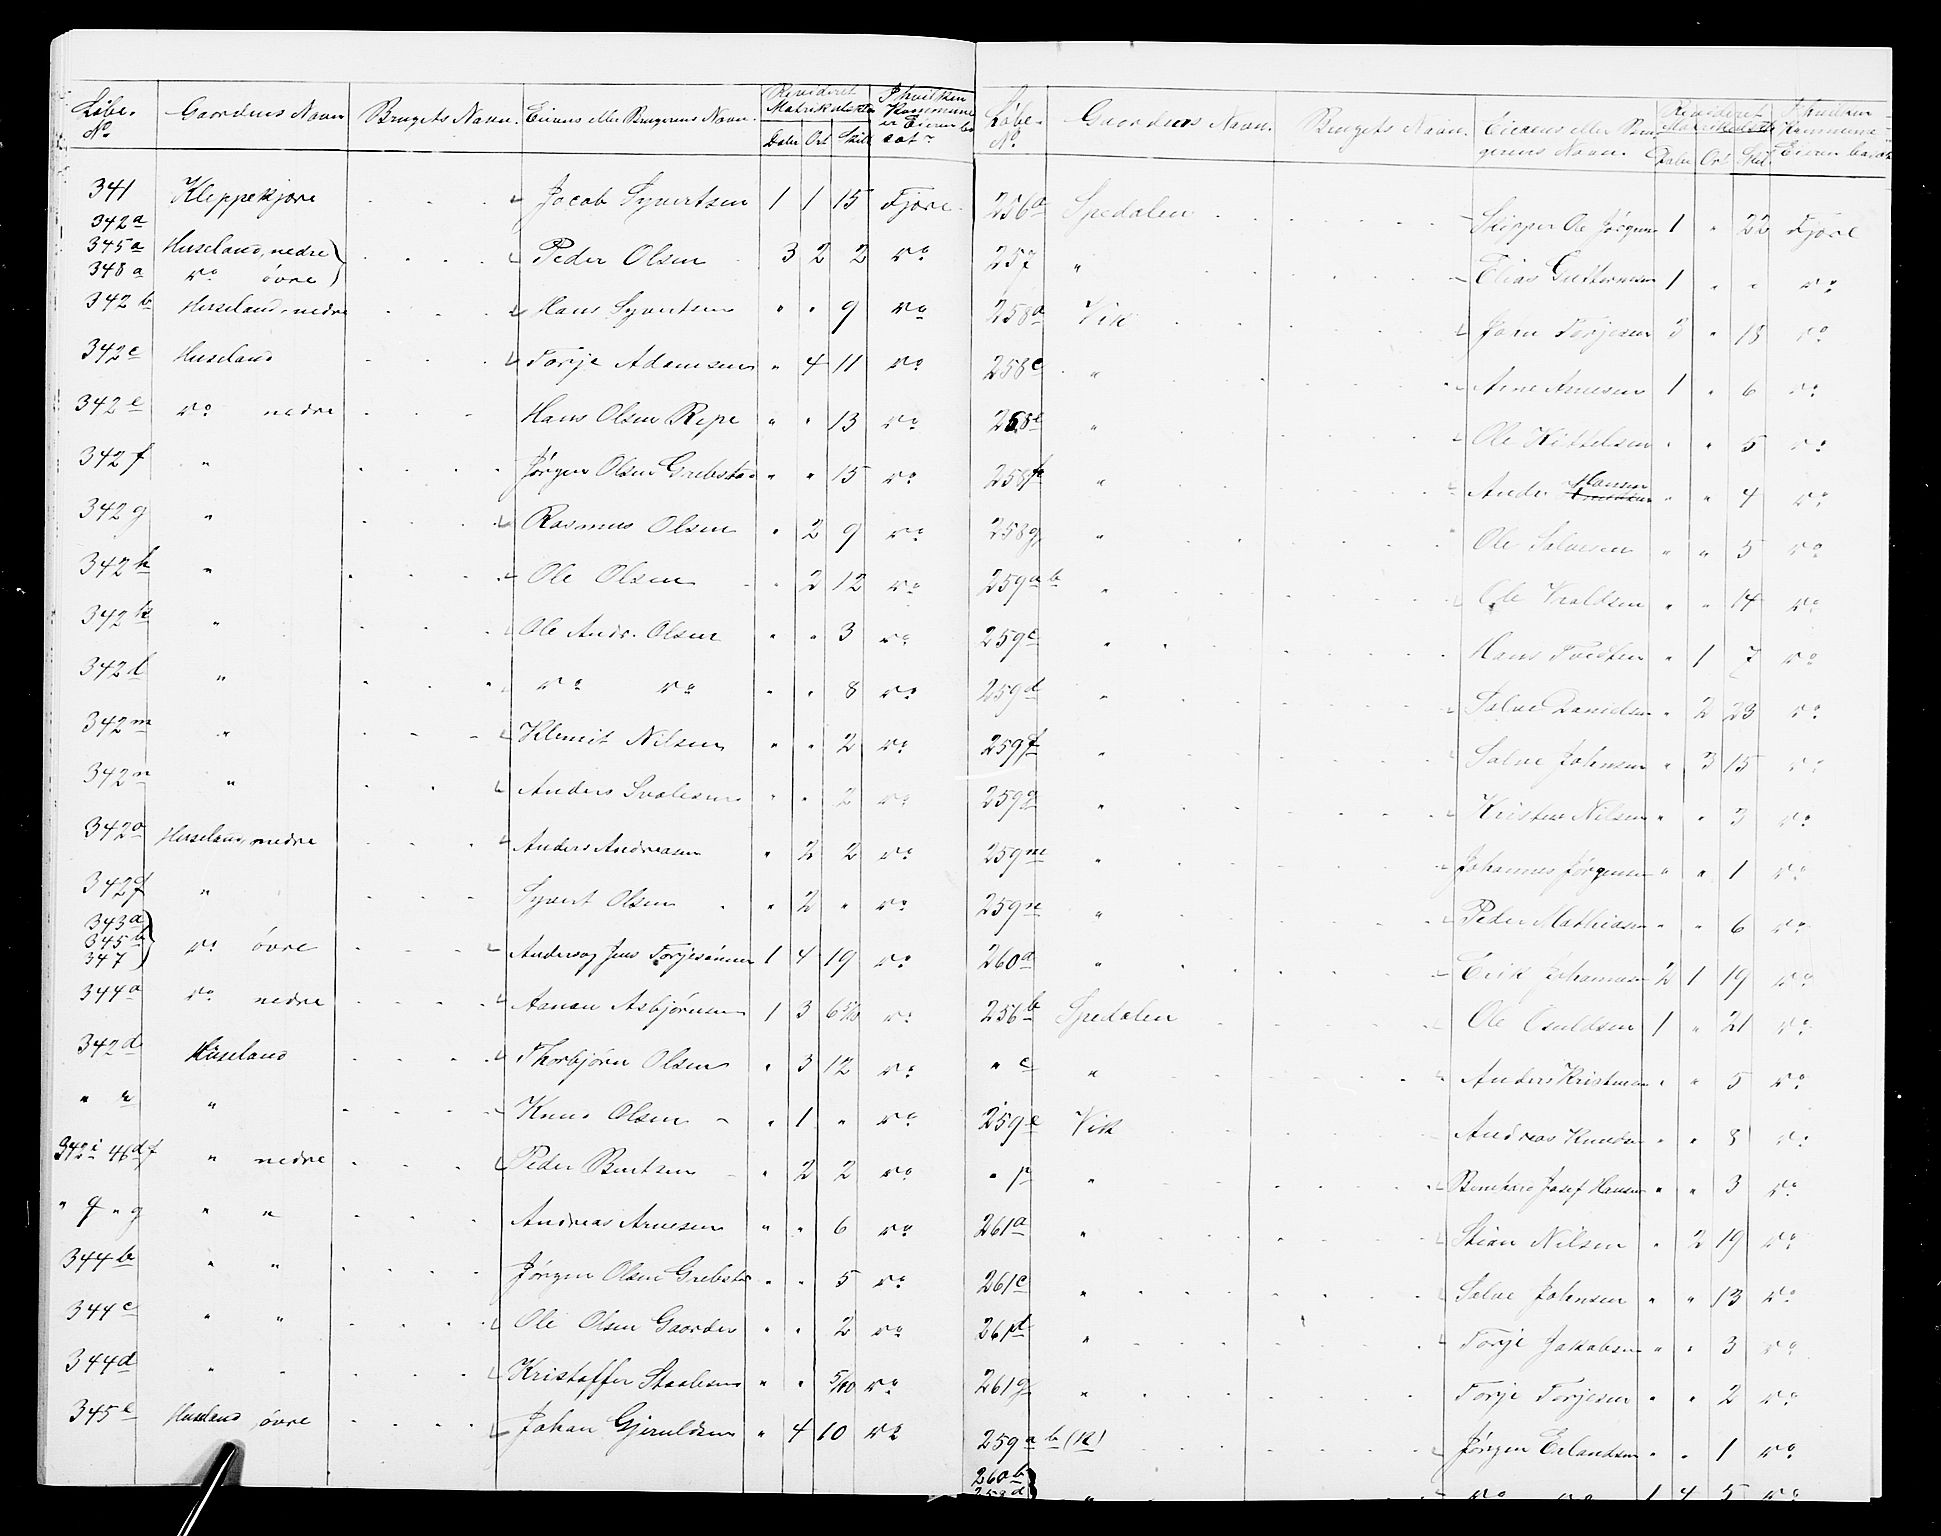 Løbe- No Gaardens Navn Brugets Navn. Eierens eller Brugerens Navn. Revideret Matrikulskyld Daler Ort Skill I hvilken Kommune er Eieren bosat
341 Kleppekjøre Jacob Syvertsen 1 1 15 Fjære
342a
345a Huseland, nedre Peder Olsen 3 2 2 do
348a do øvre
342b Huseland, nedre Hans Syvertsen " " 9 do
342c Huseland Torje Adamsen " 4 11 do
342e do nedre Hans Olsen Ripe " " 13 do
342f " Jørgen Olsen Grebsta " " 15 do
342g " Rasmus Olsen " 2 9 do
342h " Ole Olsen " 2 12 do
342k " Ole Andr. Olsen " " 3 do
342l " do do " " 8 do
342m " Klemit Nilsen " " 2 do
342n " Anders " " 2 do
342o Huseland, nedre Anders Andreasen " 2 2 do
342f " Syvert Olsen " 2 " do
343a
345b do øvre Anders og Jens Torjesønner 1 4 19 do
347
344a do nedre Aanon Asbjørnsen 1 3 6 5/10 do
342d Huseland Thorbjørn Olsen " 3 12 do
" " Knud Olsen " 1 " do
46d f " nedre Peder Berntsen " 2 2 do
" q " g " " Andreas Arnesen " " 6 do
344b " " Jørgen Olsen Grebsta " " 5 do
344c " " Ole Olsen Gaarder " " 2 do
344d " " Kristoffer " " 5/10 do
345c Huseland øvre Johan Gjeruldsen " 4 10 do
Løbe- No Gaardens Navn. Brugets Navn. Eierens eller Brugerens Navn. Revideret Matrikulskyld Daler Ort Skil. I hvilken Kommune Eieren bosat
256a Spedalen Skipper Ole Jørgensen 1 " 22 Fjære
257 " Elias Guttormsen 1 " " do
258a Vik Jørn Torjesen 3 " 18 do
258c " Arne Arnesen 1 " 6 do
258e " Ole Kittelsen " " 5 do
258f " Anders Hansen " " 4 do
258g " Ole Salvesen " " 5 do
259a b " Ole " " 14 do
259c " Hans Tveden " 1 7 do
259d " Salve Danielsen " 2 23 do
259f " Salve Johnsen " 3 15 do
259g " Kristen Nilsen " " 3 do
259m " Johannes Jørgensen " " 1 do
259n " Peder Mathiasen " " 6 do
260a " Erik Johannesen 2 1 19 do
256b Spedalen Ole Osuldsen 1 " 21 do
" c " Anders Kristensen " " 5 do
259e Vik Andreas Knudsen " " 8 do
" p " Bernhard Josef Hansen " " 3 do
261a " Stian Nilsen " 2 19 do
261c " Salve Johnsen " " 13 do
261d " Torje Jakobsen " " 3 do
261g " Torje Torjesen " " 2 do
259a b (k) Jørgen Erlandsen " " 1 do
260b
258d " do do 1 4 5 do